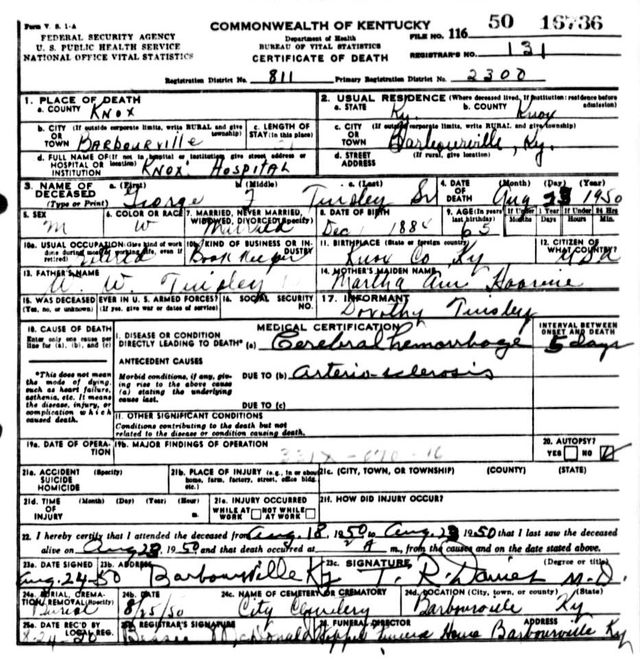 Form V. S. 1-A
COMMONWEALTH OF KENTUCKY
FEDERAL SECURITY AGENCY
U. S. PUBLIC HEALTH SERVICE
NATIONAL OFFICE VITAL STATISTICS
Department of Health
BUREAU OF VITAL STATISTICS
CERTIFICATE OF DEATH
FILE NO. 116 50 16736
REGISTRAR'S NO. 131
Registration District No. 811 Primary Registration District No. 2300
1. PLACE OF DEATH
a. COUNTY Knox
2. USUAL RESIDENCE (Where deceased lived. If institution: residence before admission)
a. STATE Ky. b. COUNTY Knox
b. CITY (If outside corporate limits, write RURAL and give township) OR TOWN Barbourville
c. LENGTH OF STAY (in this place)
c. CITY (If outside corporate limits, write RURAL and give township) OR TOWN Barbourville, Ky.
d. FULL NAME OF (If not in hospital or institution, give street address or location) HOSPITAL OR INSTITUTION Knox Hospital
d. STREET ADDRESS (If rural, give location)
3. NAME OF DECEASED (Type or Print) a. (First) George b. (Middle) F c. (Last) Tinsley Sr
4. DATE OF DEATH (Month) (Day) (Year) Aug 23 1950
5. SEX M
6. COLOR OR RACE W
7. MARRIED, NEVER MARRIED, WIDOWED, DIVORCED (Specify) Married
8. DATE OF BIRTH Dec 1 1884
9. AGE (In years last birthday) 65 If Under 1 Year Months Days If Under 24 Hrs Hours Min.
10a. USUAL OCCUPATION (Give kind of work done during most of working life, even if retired) Retired
10b. KIND OF BUSINESS OR INDUSTRY Book Keeper
11. BIRTHPLACE (State or foreign country) Knox Co, Ky
12. CITIZEN OF WHAT COUNTRY? USA
13. FATHER'S NAME W. Tinsley
14. MOTHER'S MAIDEN NAME Martha Ann
15. WAS DECEASED EVER IN U. S. ARMED FORCES? (Yes, no, or unknown) (If yes, give war or dates of service)
16. SOCIAL SECURITY NO.
17. INFORMANT Dorothy Tinsley
18. CAUSE OF DEATH
Enter only one cause per line for (a), (b), and (c)
MEDICAL CERTIFICATION
INTERVAL BETWEEN ONSET AND DEATH
I. DISEASE OR CONDITION DIRECTLY LEADING TO DEATH* (a) Cerebral hemorrhage 5 days
*This does not mean the mode of dying, such as heart failure, asthenia, etc. It means the disease, injury, or complication which caused death.
ANTECEDENT CAUSES
Morbid conditions, if any, giving rise to the above cause (a) stating the underlying cause last.
DUE TO (b) Arterio-sclerosis
DUE TO (c)
II. OTHER SIGNIFICANT CONDITIONS
Conditions contributing to the death but not related to the disease or condition causing death.
19a. DATE OF OPERATION
19b. MAJOR FINDINGS OF OPERATION
20. AUTOPSY?
YES NO
21a. ACCIDENT (Specify) SUICIDE HOMICIDE
21b. PLACE OF INJURY (e.g., in or about home, farm, factory, street, office bldg., etc.)
21c. (CITY, TOWN, OR TOWNSHIP) (COUNTY) (STATE)
21d. TIME OF INJURY (Month) (Day) (Year) (Hour) m.
21e. INJURY OCCURRED WHILE AT WORK NOT WHILE AT WORK
21f. HOW DID INJURY OCCUR?
22. I hereby certify that I attended the deceased from Aug. 18, 1950 to Aug. 23 1950 that I last saw the deceased
alive on Aug 23 1950 and that death occurred at A m., from the causes and on the date stated above.
23a. DATE SIGNED Aug-24-50
23b. ADDRESS Barbourville Ky
23c. SIGNATURE (Degree or title) T. R. Davies M.D.
24a. BURIAL, CREMATION, REMOVAL (Specify) Burial
24b. DATE 8/25/50
24c. NAME OF CEMETERY OR CREMATORY City Cemetery
24d. LOCATION (City, town, or county) (State) Barbourville Ky
25a. DATE REC'D BY LOCAL REG. 8-24-50
REGISTRAR'S SIGNATURE Bessie McDonald
FUNERAL DIRECTOR ADDRESS Funeral Home Barbourville Ky